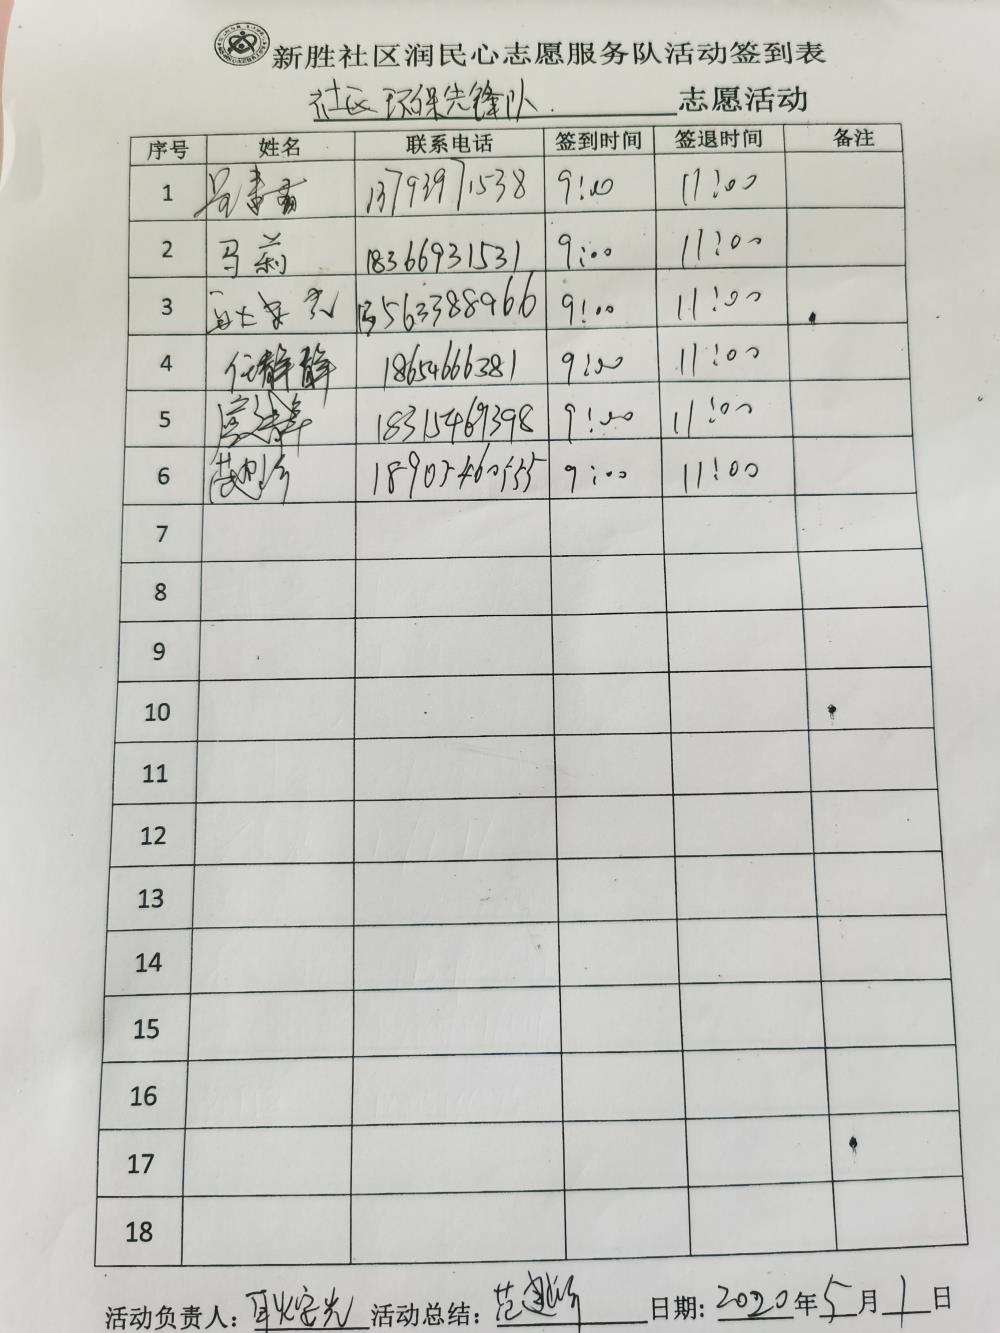 新胜社区润民心志愿服务队活动签到表
社区环保先锋队 志愿活动
序号 姓名 联系电话 签到时间 签退时间 备注
1 13793971538 9:00 11:00
2 马莉 18366931531 9:00 11:00
3 13563388966 9:00 11:00
4 任静静 18654666381 9:00 11:00
5 18315469398 9:00 11:00
6 18905460555 9:00 11:00
7
8
9
10
11
12
13
14
15
16
17
18
活动负责人: 活动总结: 日期: 2020年5月1日